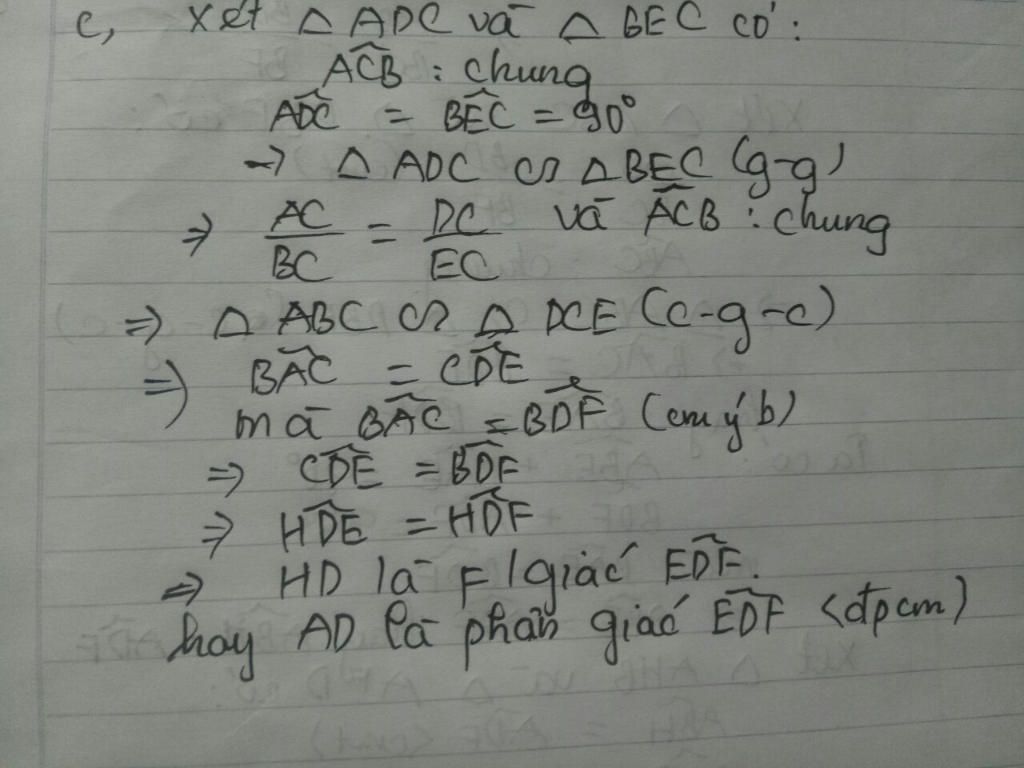 c, Xét △ ADC và △ BEC có:
ACB : chung
ADC = BEC = 90°
→ △ ADC ∽ △BEC (g-g)
⇒ AC/BC = DC/EC và ACB : chung
⇒ △ ABC ∽ △ DCE (c-g-c)
⇒ BAC = CDE
mà BAC = BDF (cm ý b)
⇒ CDE = BDF
⇒ HDE = HDF
⇒ HD là F/giác EDF.
hay AD là phân giác EDF <đpcm)